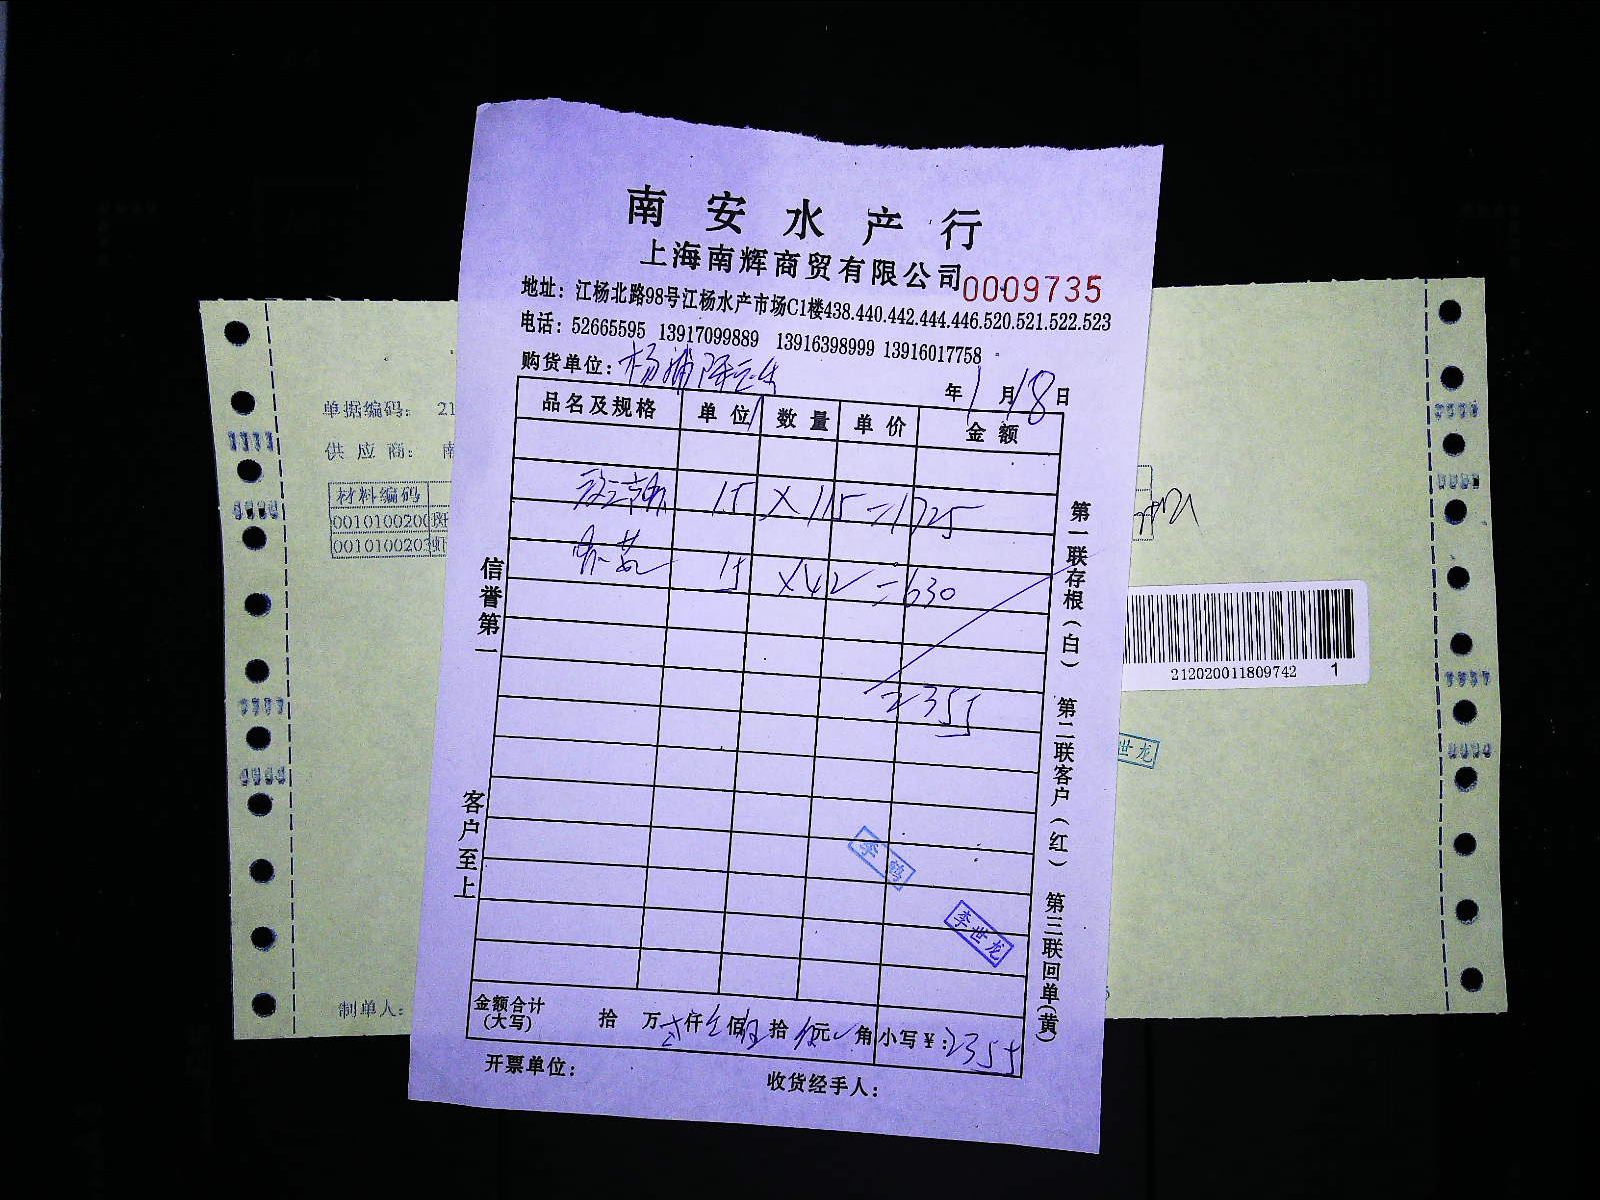 南安水产行
上海南辉商贸有限公司 0009735
地址：江杨北路98号江杨水产市场C1楼438.440.442.444.446.520.521.522.523
电话：52665595 13917099889 13916398999 13916017758
购货单位：杨浦
年1月18日
品名及规格 单位 数量 单价 金额
15 × 115 = 1725
15 × 42 = 630
2355
李鹤
李世龙
金额合计(大写) 拾 万 贰仟 佰 拾 元 角 小写￥：2355
开票单位： 收货经手人：
信誉第一 客户至上
第一联存根（白） 第二联客户（红） 第三联回单(黄)
单据编码： 21
供应商： 南
材料编码
0010100200 斑
0010100203 虾
制单人：
212020011809742 1
世龙